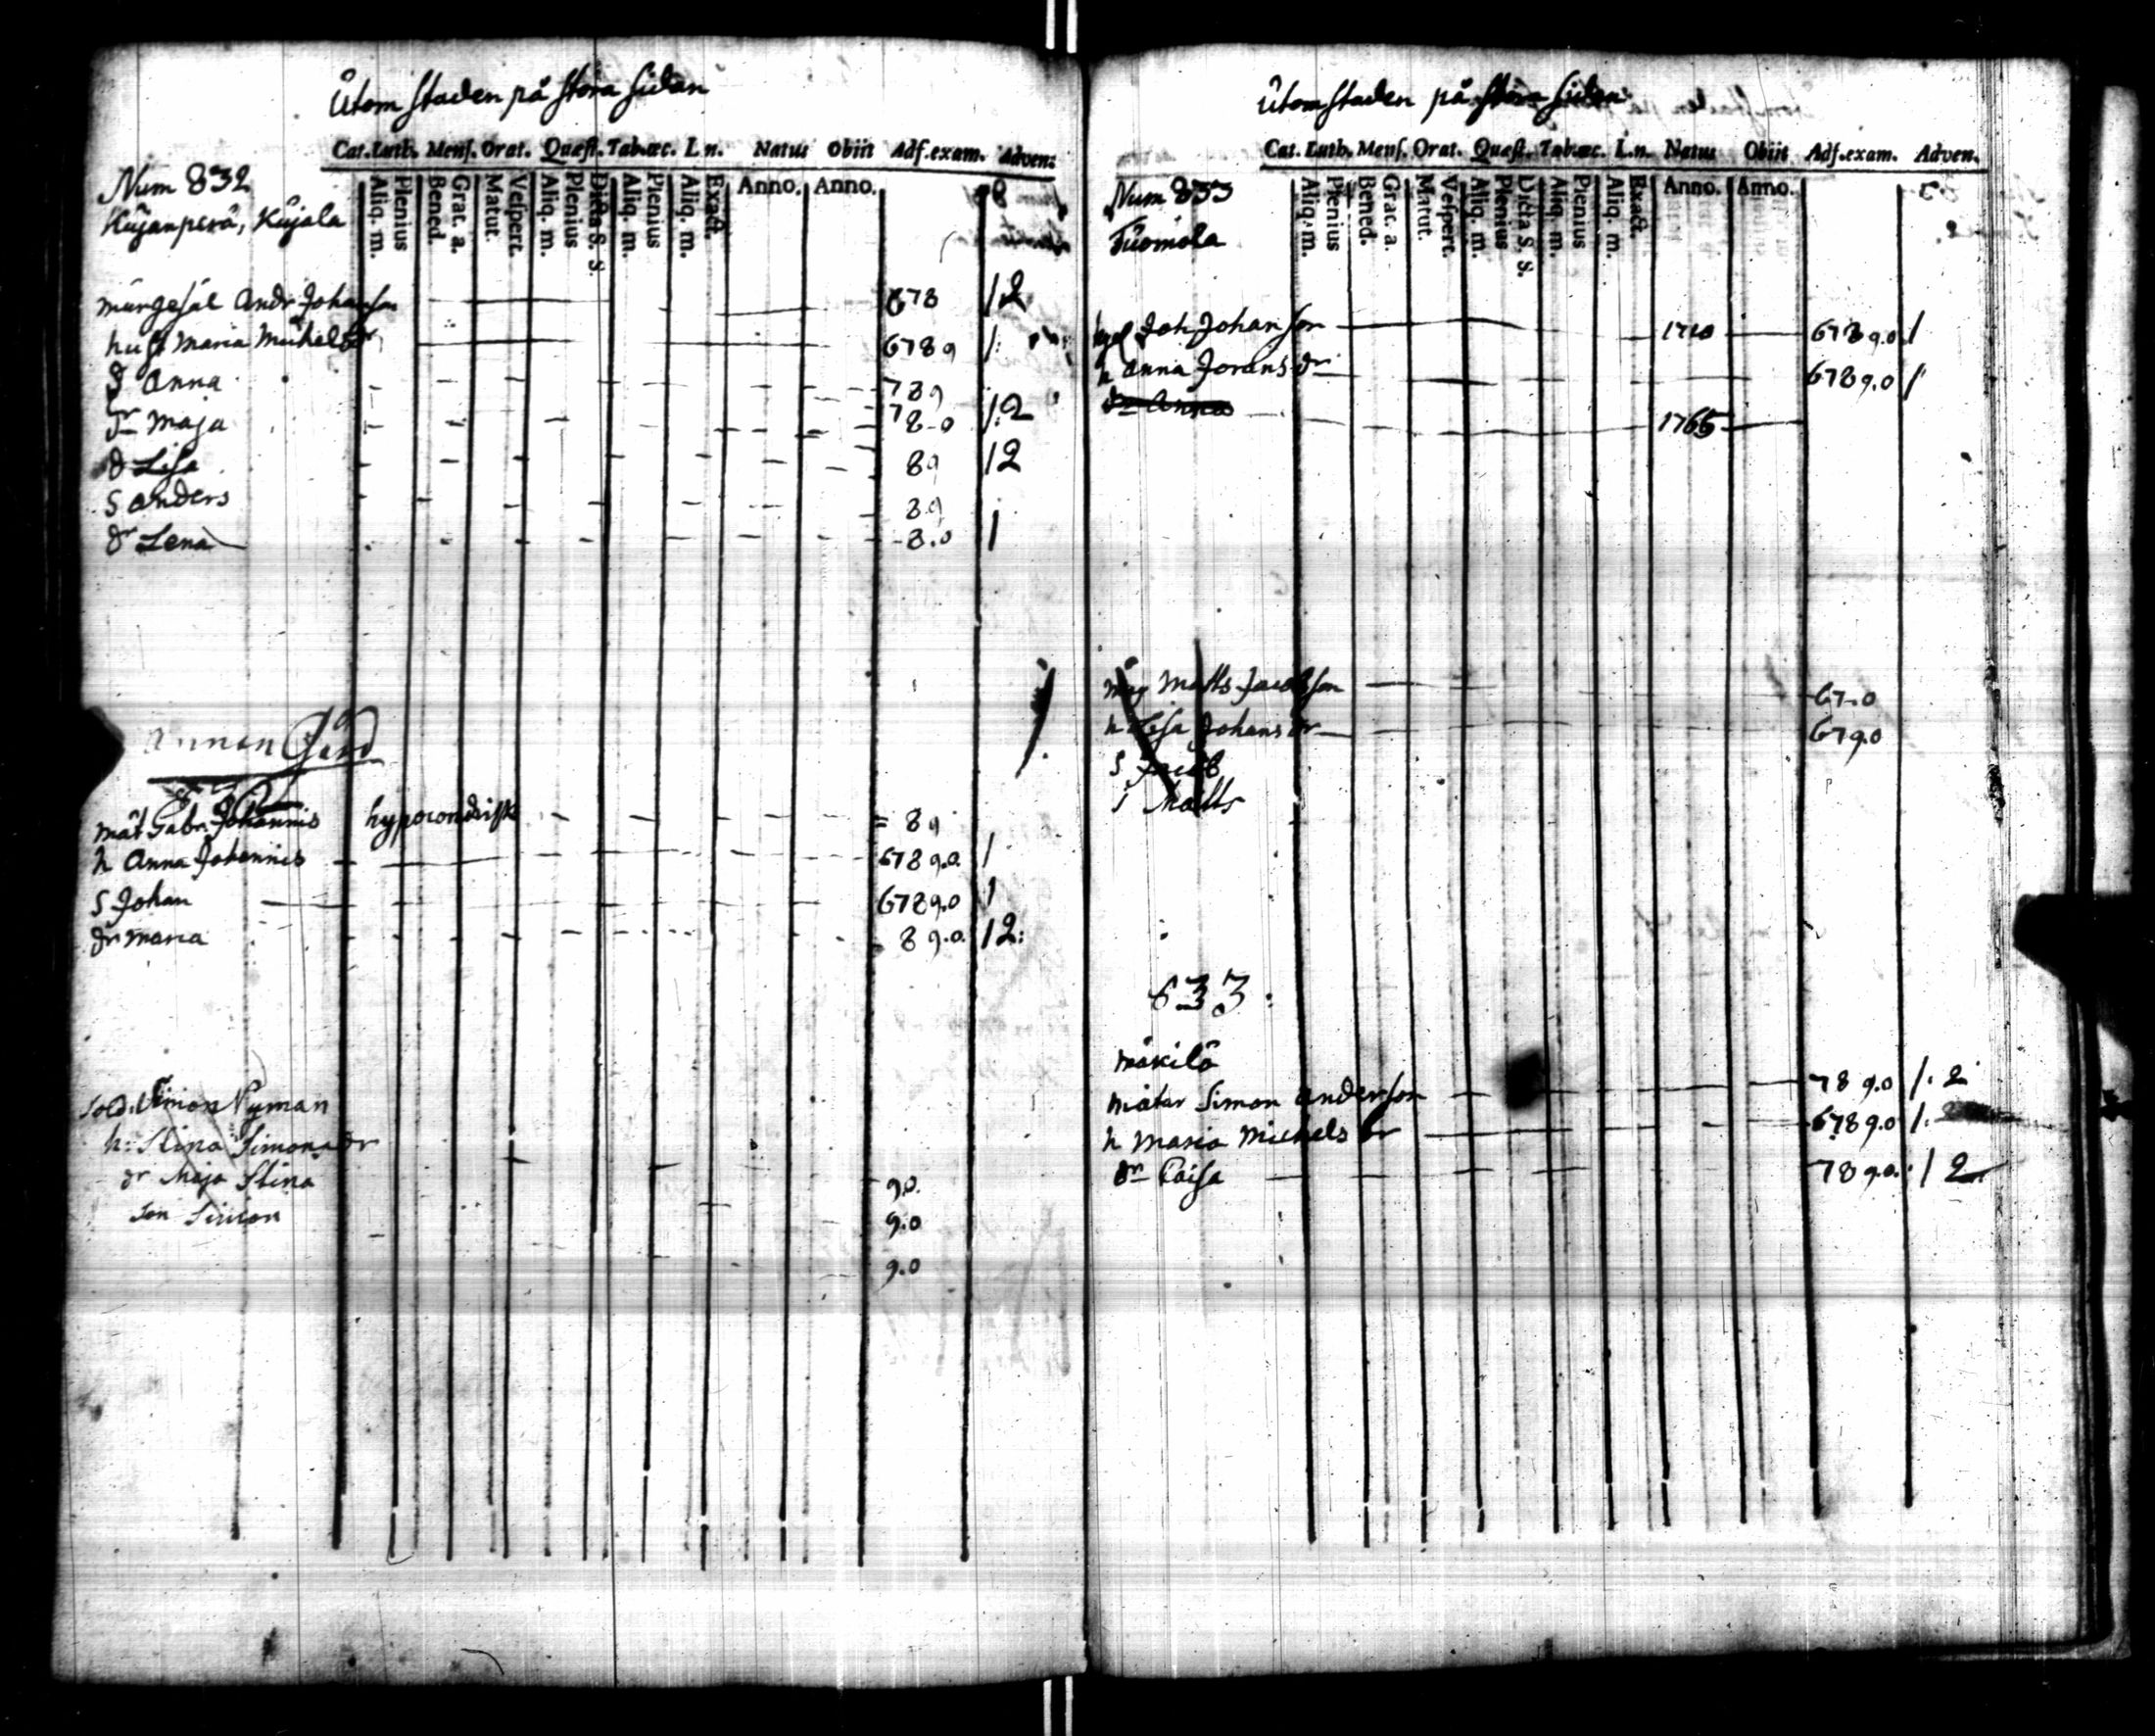 Utom staden på stora sidan
Cat. Luth. Mens. Orat. Quæst. Tab. œc. L n. Natus Obiit Adf. exam. Adven.
Aliq. m. Plenius Bened. Grat. a. Matut. Vespert. Aliq. m. Plenius Dicta S. S. Aliq. m. Plenius Aliq. m. Exact. Anno. Anno.
Num 832
Kujanperä, Kujala
Andr Johanson 678 1.2
hust Maria Michelsdr 6789 1.
d Anna 789
dr Maja 78-0 1.2
d Lisa 89 12
S anders 8.9
dr Lena 8.0 1
annan Gård
måt Gabr. Johannis hypocondrisk 89
h Anna Johannis 6789.0. 1
S Johan 6789.0 1
dr maria 89.0. 12:
Sold. Simon Nyman
h: Stina Simonsdr
dr Maja Stina 9.0.
son Simon 9.0
9.0
Utom staden på stora sidan
Cat. Luth. Mens. Orat. Quæst. Tab. œc. L. n. Natus Obiit Adf. exam. Adven.
Aliq. m. Plenius Bened. Grac. a. Matut. Vespert. Aliq. m. Plenius Dicta S. S. Aliq. m. Plenius Aliq. m. Exact. Anno. Anno.
Num 833
Tuomola
Joh Johanson 1710 6789.0 1
h Anna Joransdr 6789.0 1
dr Anna 1765
Matts Jacobson 67.0
h Lisa Johansdr 679.0
S Jacob
S Matts
833
mäkilä
måtar Simon anderson 789.0 1. 2
h Maria Michelsdr 6789.0 1.
dr Caisa 789.0. 1 2